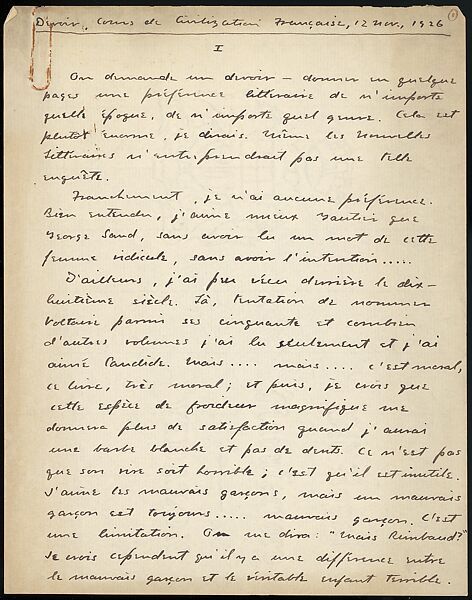 Devoir, Cours de Civilization Française, 12 Nov., 1926
1
I
On demande un devoir — donner en quelque
pages une préférence litteraire de n'importe
quelle époque, de n'importe quel genre. Cela est
plutôt énorme, je dirais. Même les Nouvelles
Litteraires n'entreprendrait pas une telle
enquête.
Franchement, je n'ai aucune préférence.
Bien entendu, j'aime mieux Gautier que
George Sand, sans avoir lu un mot de cette
femme ridicule, sans avoir l'intention.....
D'ailleurs, j'ai peu vécu derrière le dix-
huitième siècle. Là, tentation de nommer
Voltaire parmi ses cinquante et combien
d'autres volumes j'ai lu seulement et j'ai
aimé Candide. Mais.... mais.... c'est moral,
ce livre, très moral; et puis, je crois que
cette espèce de froideur magnifique me
donnera plus de satisfaction quand j'aurai
une barbe blanche et pas de dents. Ce n'est pas
que son rire soit horrible; c'est qu'il est inutile.
J'aime les mauvais garçons, mais un mauvais
garçon est toujours..... mauvais garçon. C'est
une limitation. On me dira: "Mais Rimbaud?"
Je crois cependent qu'il y a une différence entre
le mauvais garçon et le véritable enfant terrible.